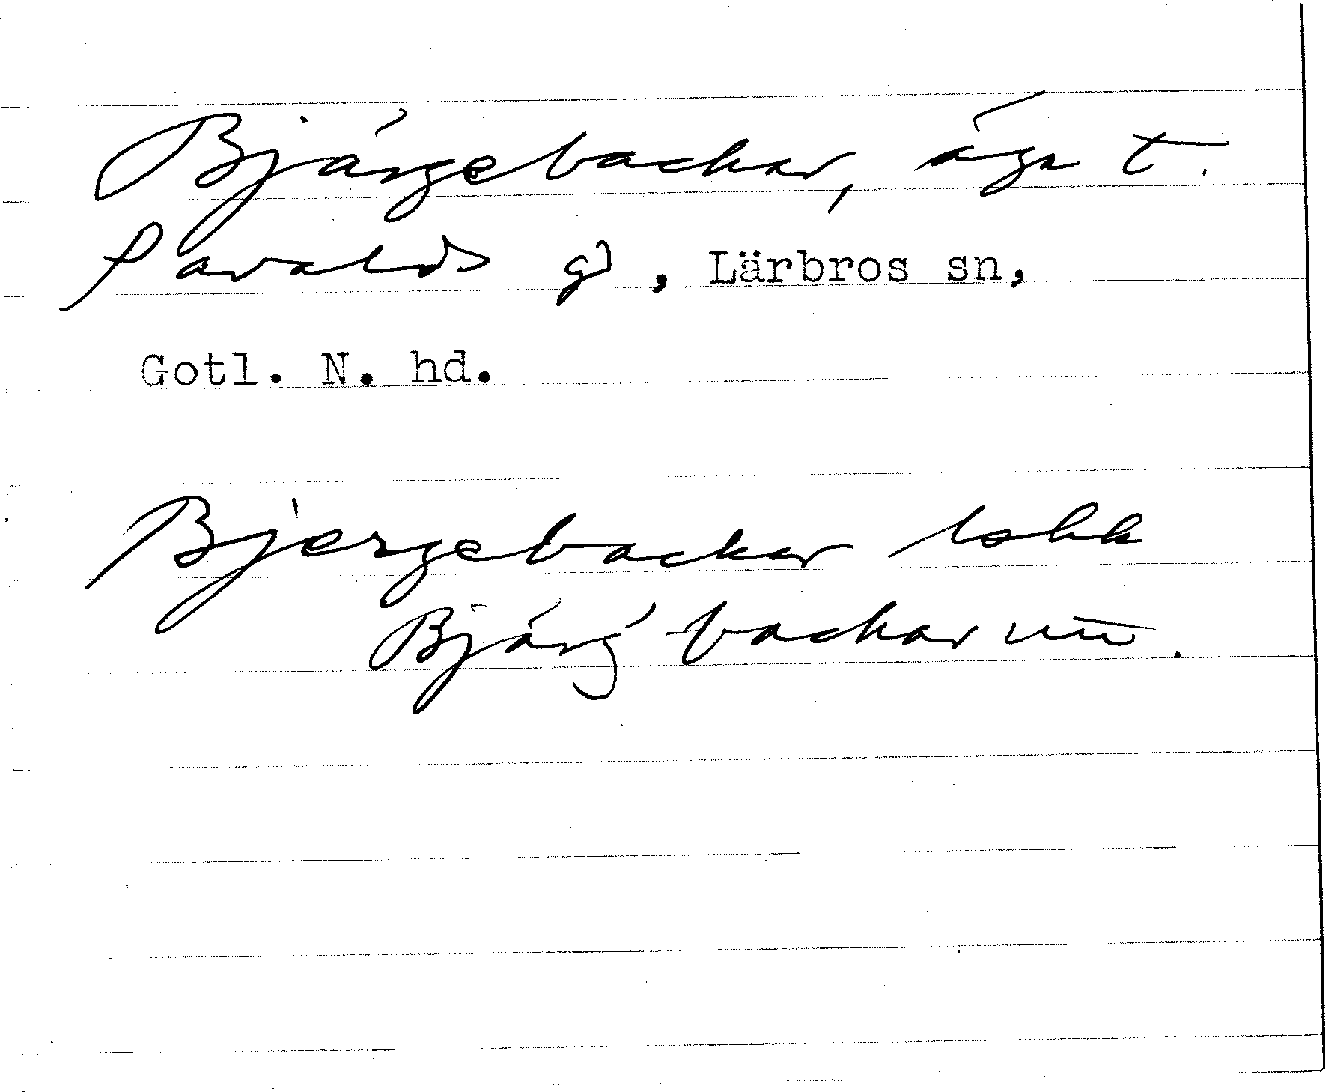 Bjärgebackar, äga t.
Pavalds gd, Lärbros sn,
Gotl. N. hd.
Bjergebackar
Bjärg backar